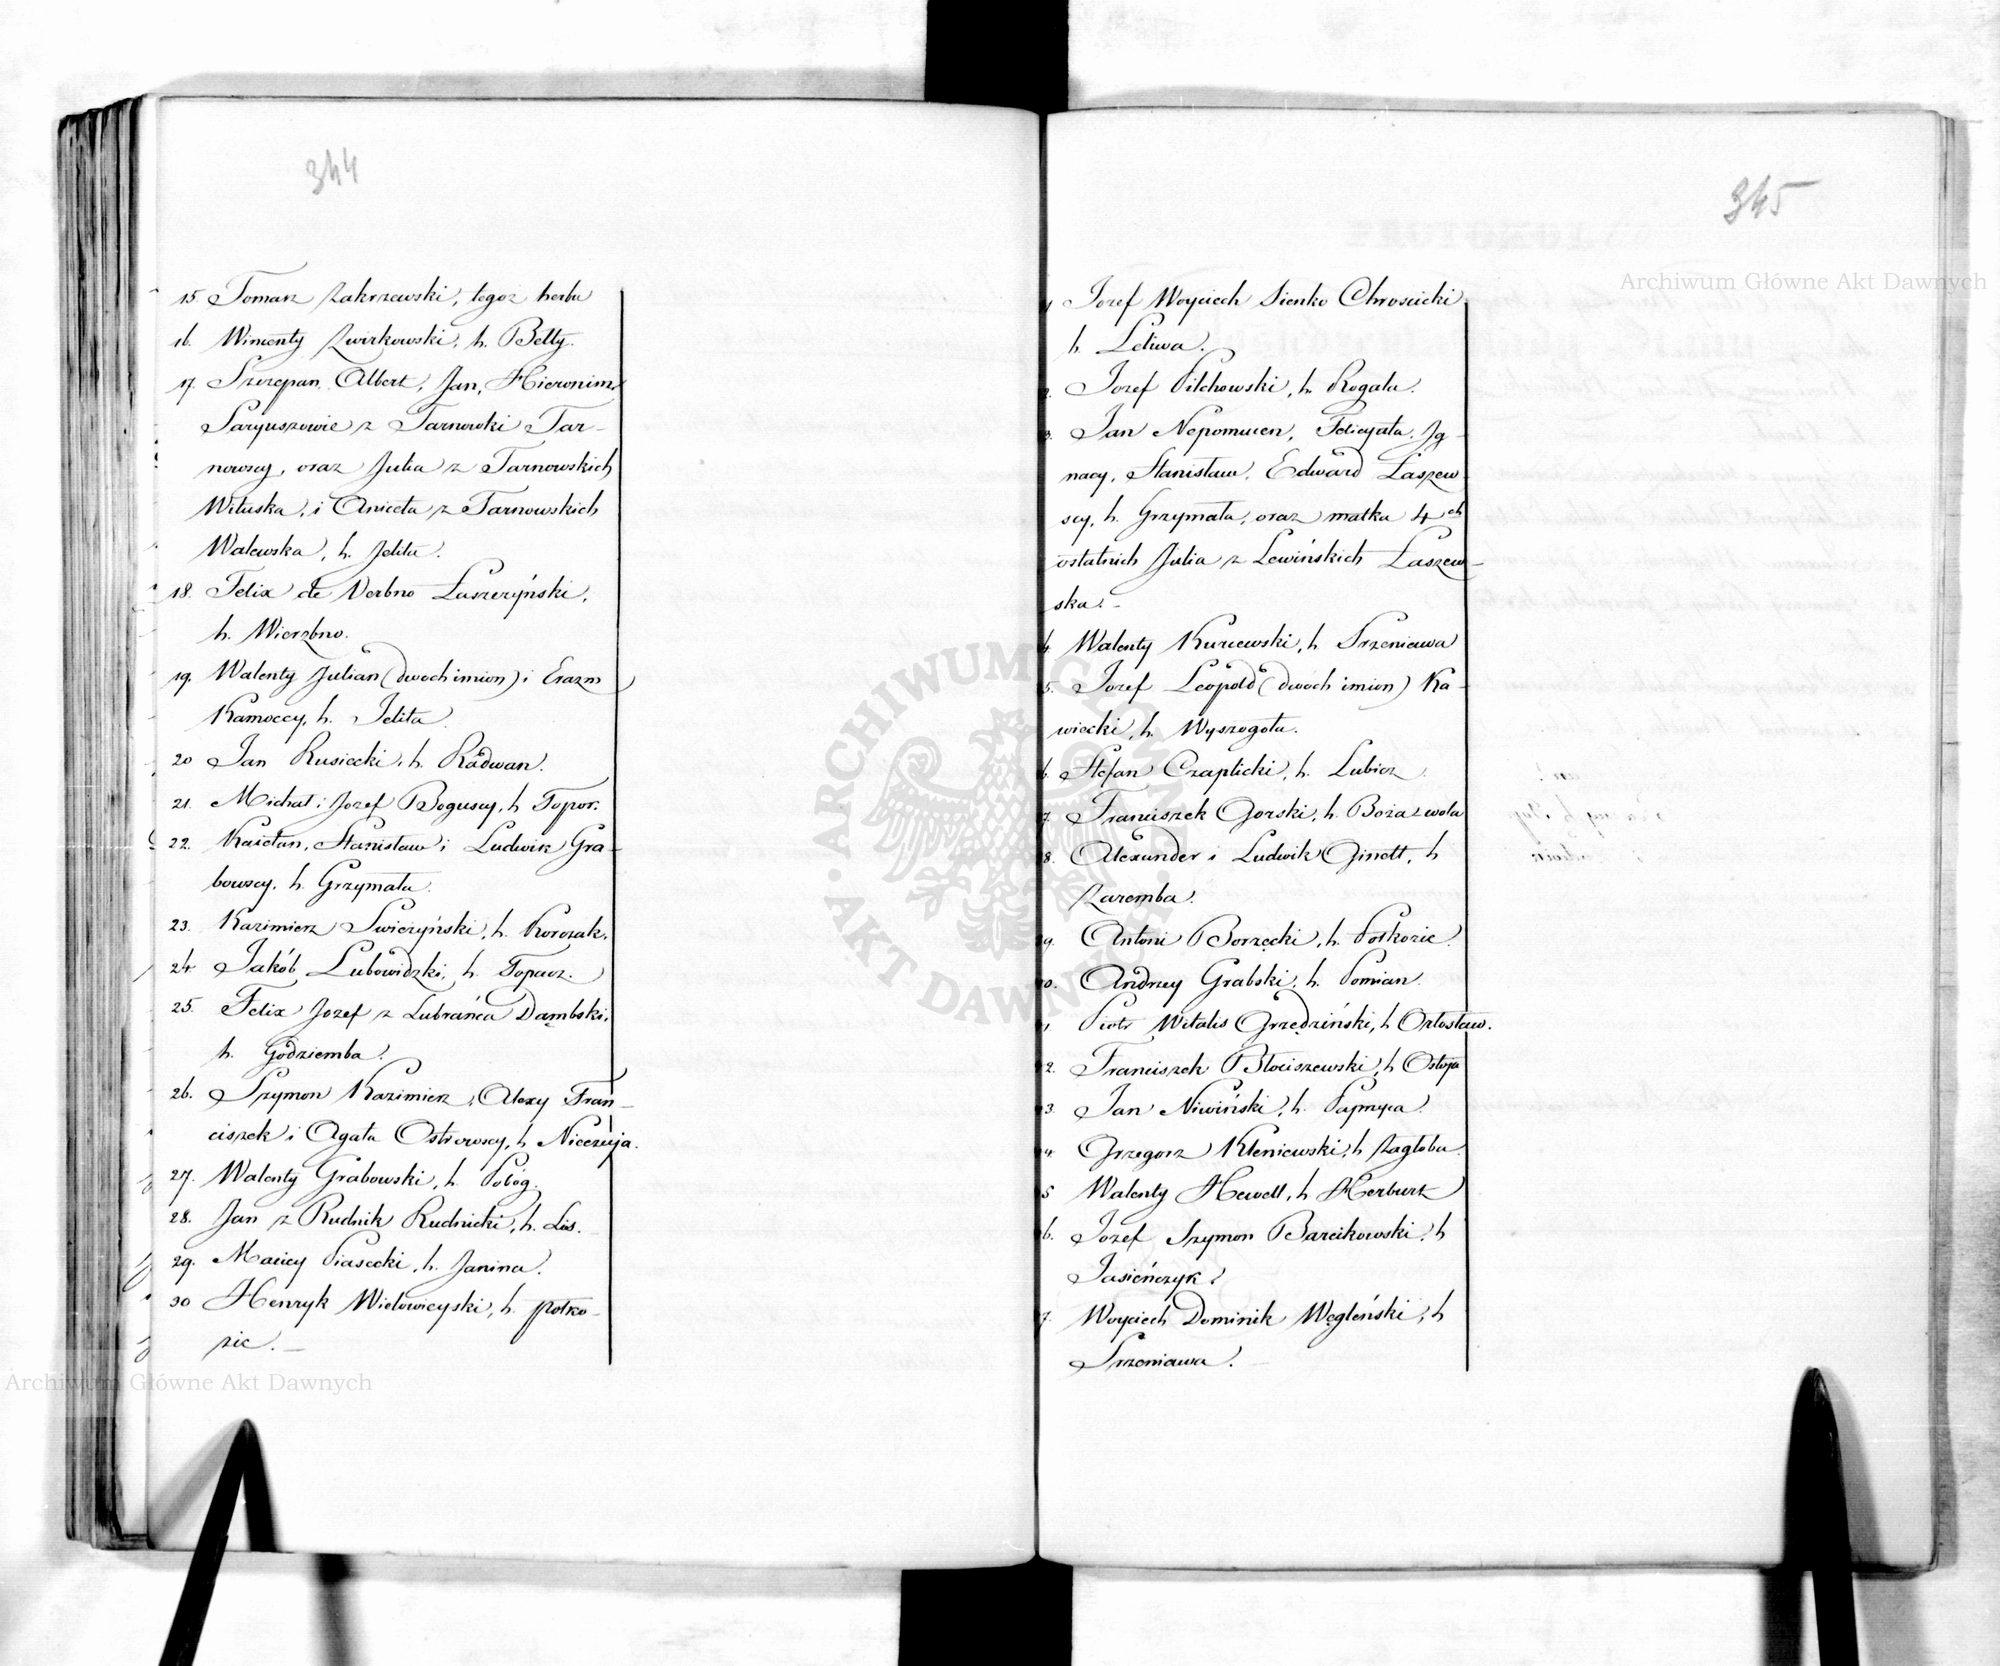 344
15. Tomasz Zakrzewski, tegoż herbu
16. Wincenty Zwirkowski, h. Belty.
17. Szczepan, Albert, Jan, Hieronim,
Saryuszowie z Tarnowki Tar-
nowscy, oraz Julia z Tarnowskich
Wituska, i Aniceta z Tarnowskich
Walewska, h. Jelita.
18. Felix de Verbno Łaszczyński,
h. Wierzbno.
19. Walenty Julian (dwóch imion) i Erazm
Kamoccy, h. Jelita.
20 Jan Rusiecki, h. Radwan.
21. Michał i Jozef Boguscy, h Topor.
22. Kaietan, Stanisław i Ludwik Gra-
bowscy, h. Grzymała.
23. Kazimierz Swierzyński, h. Korczak.
24 Jakób Lubowidzki, h. Topacz.
25. Felix Jozef z Lubrańca Dąmbski,
h. Godziemba.
26. Szymon Kazimierz, Alexy Fran-
ciszek i Agata Ostrowscy, h Nieczuja.
27. Walenty Grabowski, h. Pobóg.
28. Jan z Rudnik Rudnicki, h. Lis.
29. Maciey Piasecki, h. Janina.
30 Henryk Wielowieyski, h. połko-
zic.
345
Jozef Woyciech Sienko Chroscicki
h. Leliwa.
2. Jozef Pilchowski, h. Rogala.
3. Jan Nepomucen, Felicyata, Ig-
nacy, Stanisław, Edward Łaszew-
scy, h. Grzymała, oraz matka 4ch
ostatnich Julia z Lewińskich Łaszew-
ska.
4. Walenty Kurcewski, h Srzeniawa
5. Jozef Leopold (dwóch imion) Ka-
wiecki, h. Wyszogota.
6. Stefan Czaplicki, h. Lubicz
7. Franciszek Gorski, h. Boża-wola
8. Alexander i Ludwik Ginett, h
Zaremba.
9. Antoni Borzęcki, h. Połkozic.
0. Andrzey Grabski, h. Pomian.
1. Piotr Witalis Grzędziński, h Ortosław.
2. Franciszek Błociszewski, h Ostoja
3. Jan Niwiński, h. Paprzyca.
4. Grzegorz Kleniewski, h Zagłoba.
5 Walenty Hewell, h Herburt
6. Jozef Szymon Barcikowski, h
Jasieńczyk.
7. Woyciech Dominik Węgleński, h
Srzeniawa.
Archiwum Główne Akt Dawnych
Archiwum Główne Akt Dawnych
ARCHIWUM GŁÓWNE AKT DAWNYCH